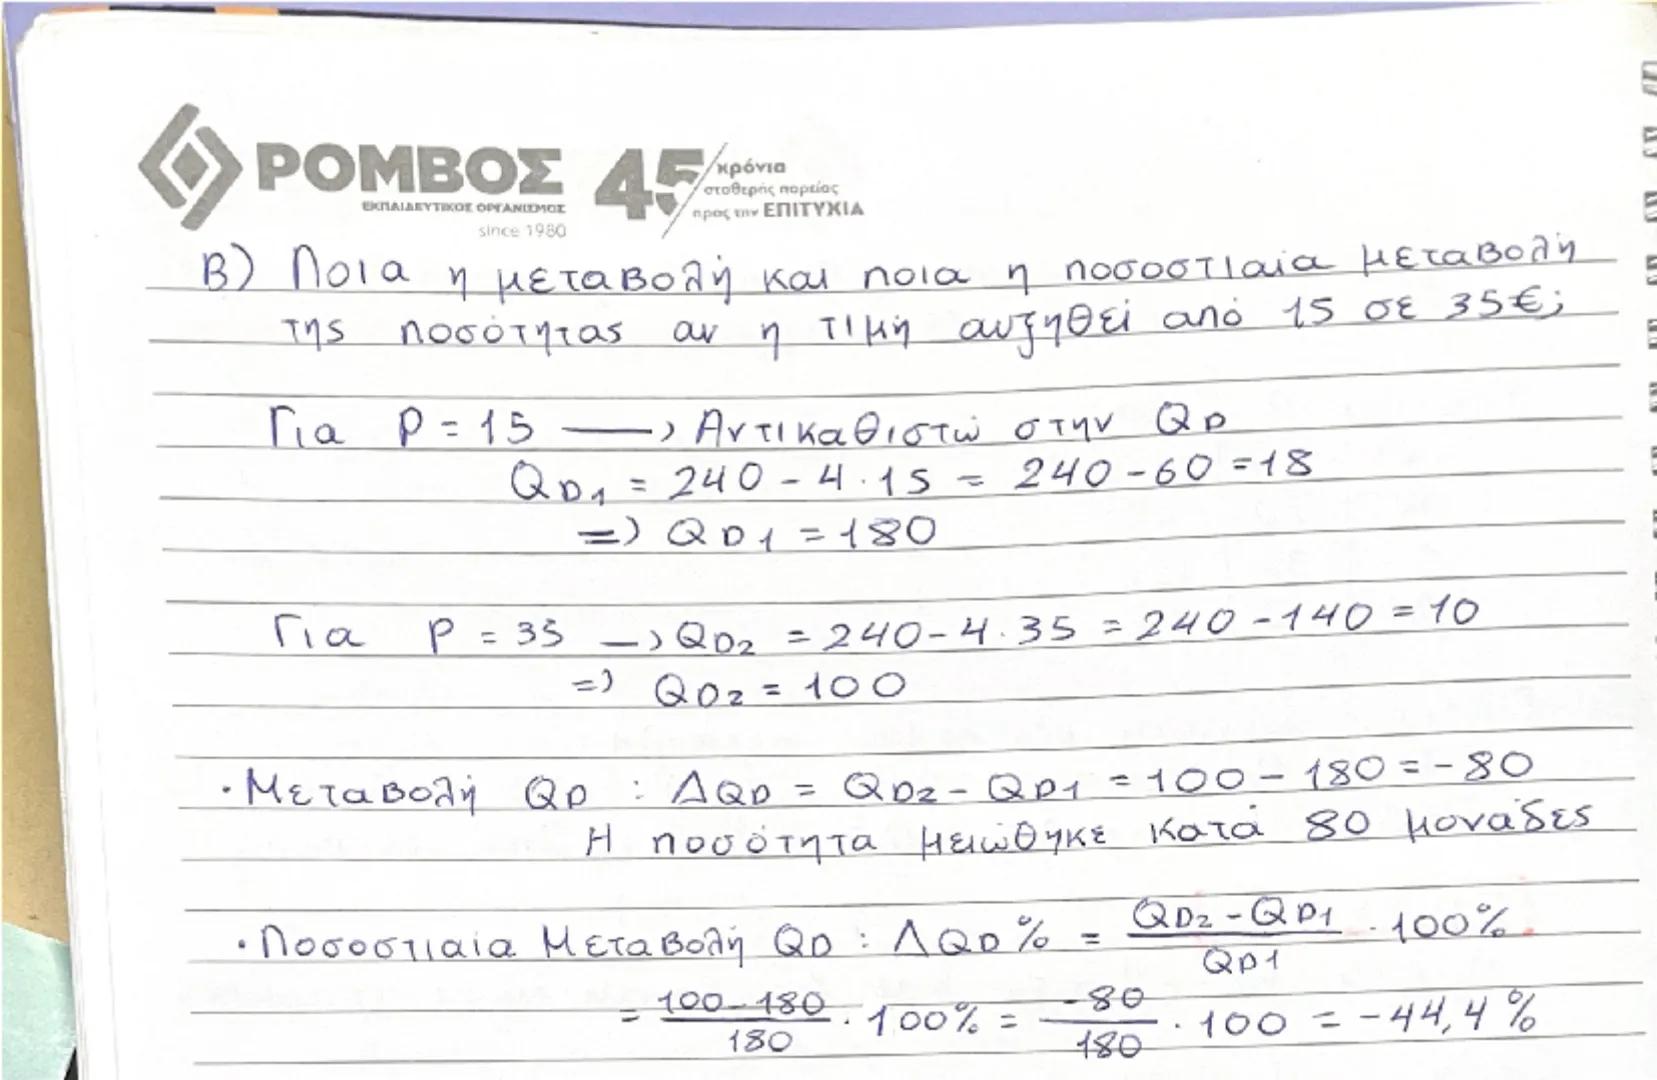 ΡΟΜΒΟΣ
ΕΚΠΑΙΔΕΥΤΙΚΟΣ ΟΡΓΑΝΙΣΜΟΣ
since 1980
45 χρόνια
σταθερής πορείας
προς την ΕΠΙΤΥΧΙΑ
Β) Ποια η μεταβολή και ποια η ποσοστιαία μεταβολή
της ποσότητας αν η τιμή αυξηθεί από 15 σε 35€;
Για P = 15 → Αντικαθιστώ στην QD
QD1 = 240 - 4 · 15 = 240 - 60 = 18
=> QD1 = 180
Για P = 35 → QD2 = 240 - 4 · 35 = 240 - 140 = 10
=> QD2 = 100
· Μεταβολή QD : ΔQD = QD2 - QD1 = 100 - 180 = -80
Η ποσότητα μειώθηκε κατά 80 μονάδες
· Ποσοστιαία Μεταβολή QD : ΔQD % = (QD2 - QD1)/QD1 · 100%
= (100-180)/180 · 100% = -80/180 · 100 = -44,4 %